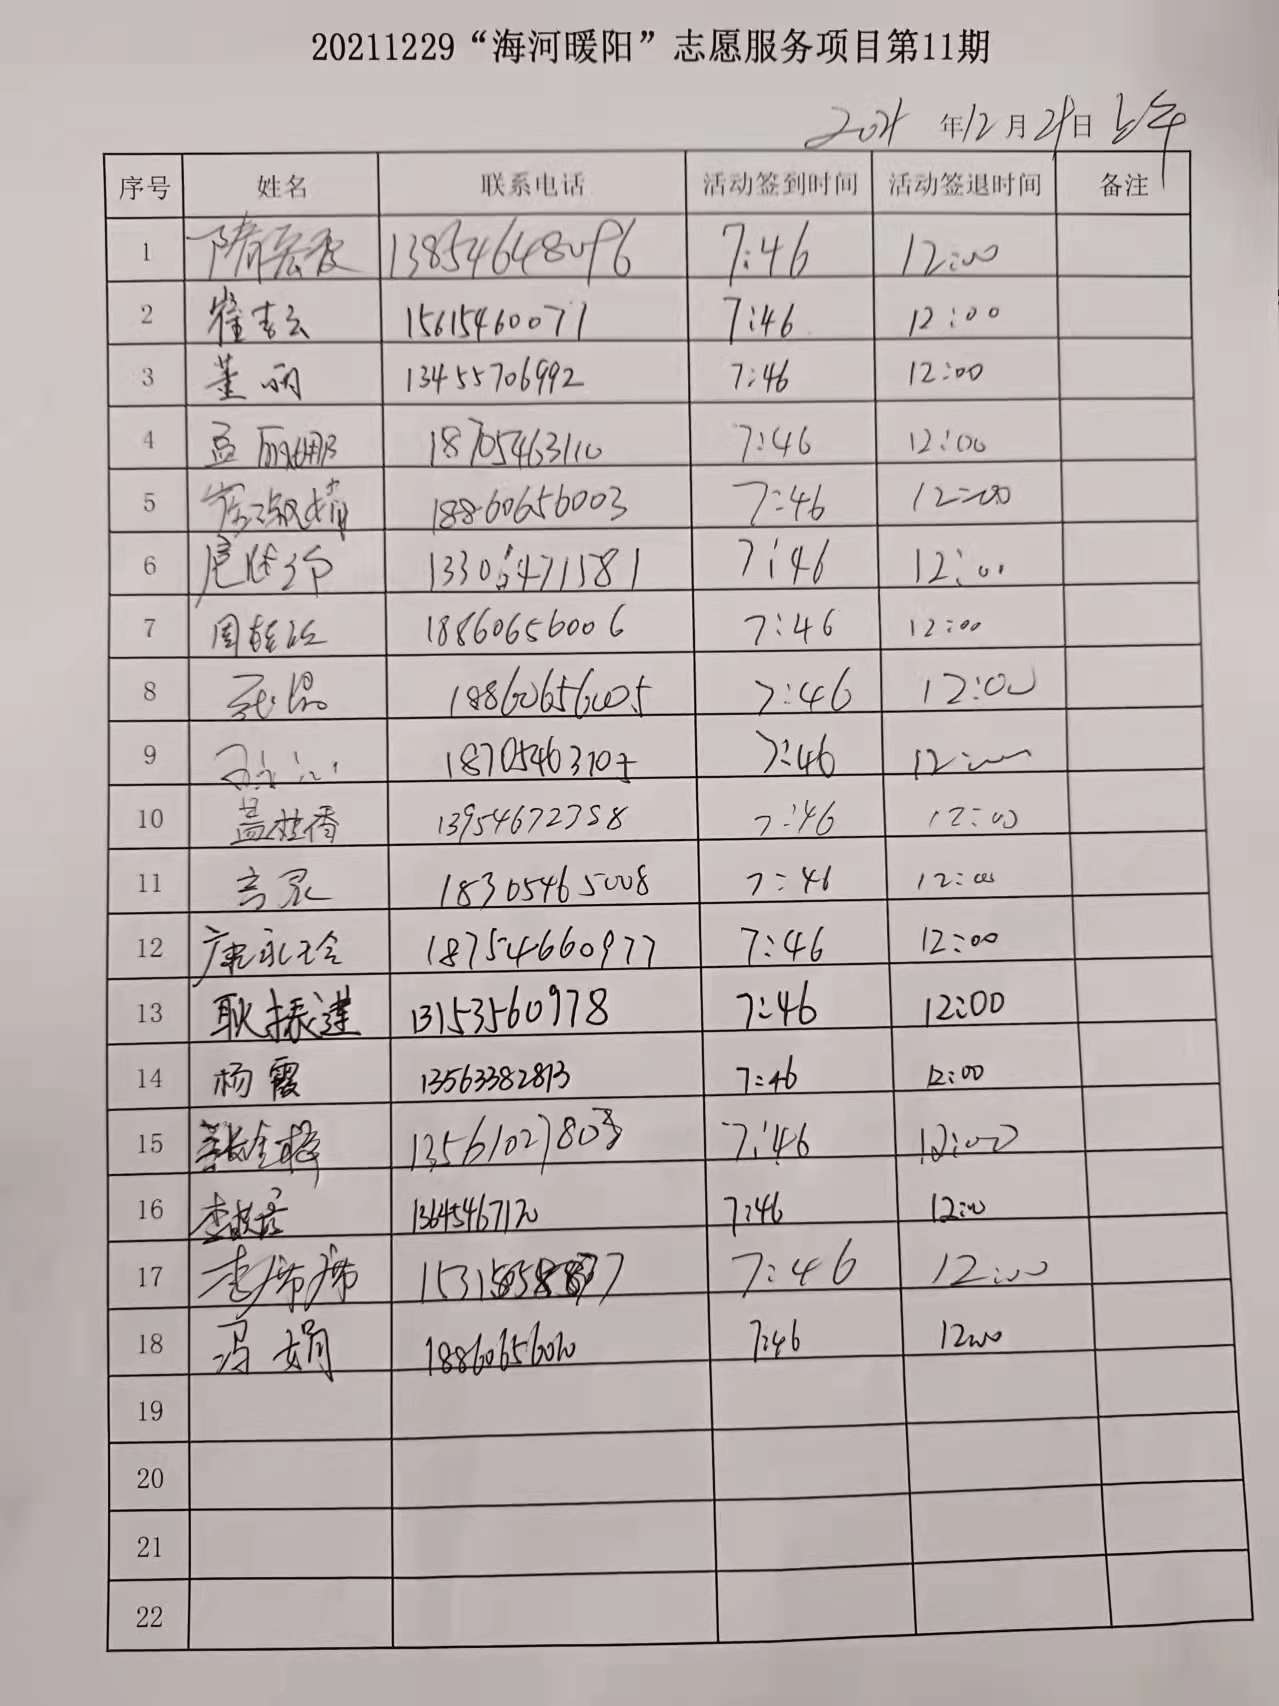 20211229“海河暖阳”志愿服务项目第11期
2021 年12月29日 上午
序号 姓名 联系电话 活动签到时间 活动签退时间 备注
1 隋宏波 13854648096 7:46 12:00
2 崔秀云 15615460071 7:46 12:00
3 董丽 13455706992 7:46 12:00
4 孟丽娜 18705463110 7:46 12:00
5 18860656003 7:46 12:00
6 7:46 12:00
7 18860656006 7:46 12:00
8 18860656005 7:46 12:00
9 7:46 12:00
10 盖桂香 13954672358 7:46 12:00
11 18305465008 7:46 12:00
12 康永玲 18754660977 7:46 12:00
13 耿振莲 13153560978 7:46 12:00
14 杨霞 13563382813 7:46 12:00
15 7:46 12:00
16 13645467120 7:46 12:00
17 李席席 7:46 12:00
18 冯娟 18860656010 7:46 12:00
19
20
21
22